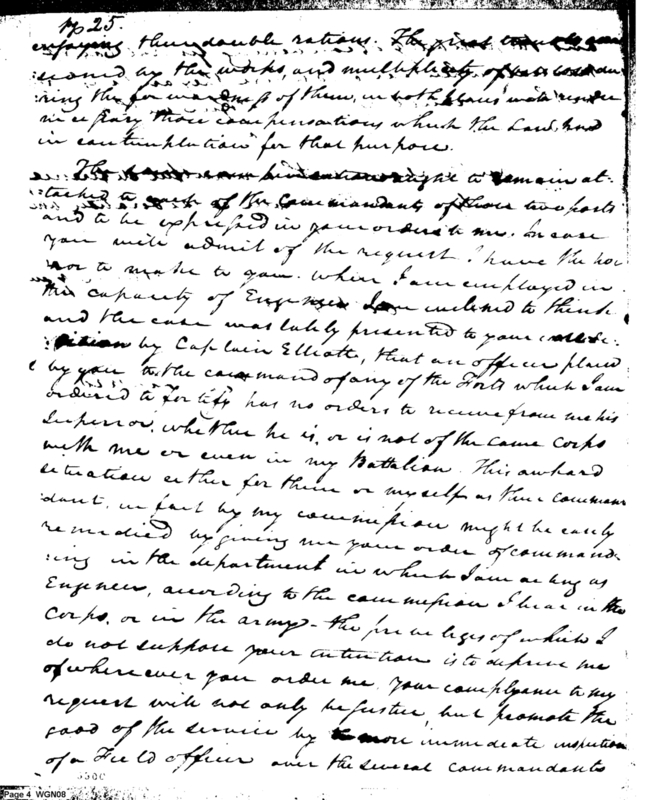 No 25.
enjoying their double rations. The
sioned by the works, and multiplicity of
ring the forwardness of them, in both places will render
necessary those compensations which the Law, had
in contemplation for that purpose.
The right to remain at-
tached to each of the Commandants of those two posts
and to be expressed in your orders to me. In case
you will admit of the request I have the ho-
nor to make to you. When I am employed in
the capacity of Engineer I am inclined to think
and the case was lately presented to your
by Captain Elliott, that an officer placed
by you to the command of any of the Forts which I am
ordered to fortify has no orders to receive from me his
Superior, whether he is, or is not of the same Corps
with me or even in my Battalion. This awkard
situation either for them or myself as their comman-
dant. in fact by my commission might be easily
remedied by giving me your order of command-
:ing in the department in which I am acting as
Engeneer, according to the commission I bear in the
Corps, or in the army - the priveleges of which I
do not suppose your intention is to deprive me
of wherever you order me. Your complyance to my
request will not only be justice, but promote the
good of the service by more immediate inspection
of a Field officer over the several commandants
Page 4 WGN08